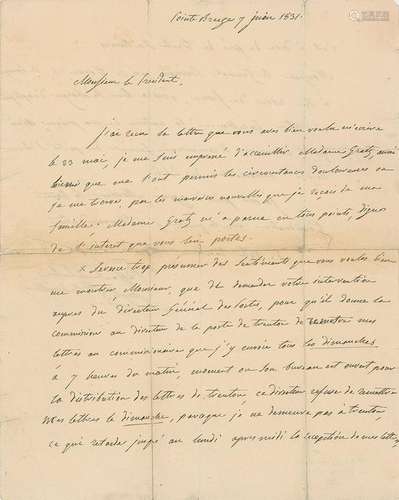 Pointe Breeze 7 juin 1831.
Monsieur le President,
J'ai recu la lettre que vous aves bien voulu m'ecrire
le 23 mai, je me suis empressé d'accueillir Madame Gratz, aussi
bien que me l'ont permis les circonstances douloureuses ou
je me trouve, par les mauvaises nouvelles que je reçois de ma
famille: Madame Gratz m'a parue en tous points, digne
de l'interet que vous lui portes.
Serais-ce trop présumer des sentiments que vous voules bien
me montrer, Monsieur, que de demander votre intervention
aupres du directeur Général des Postes, pour qu'il donne la
commission au directeur de la poste de trenton de remettre mes
lettres au commissionaire que j'y envoie tous les dimanches
à 7 heures du matin, moment ou son bureau est ouvert pour
la distribution des lettres de trenton, ce directeur refuse de remettre
mes lettres le dimanche, parceque je ne demeure pas à trenton
ce qui retarde jusqu'au lundi apres midi la reception de mes lettres